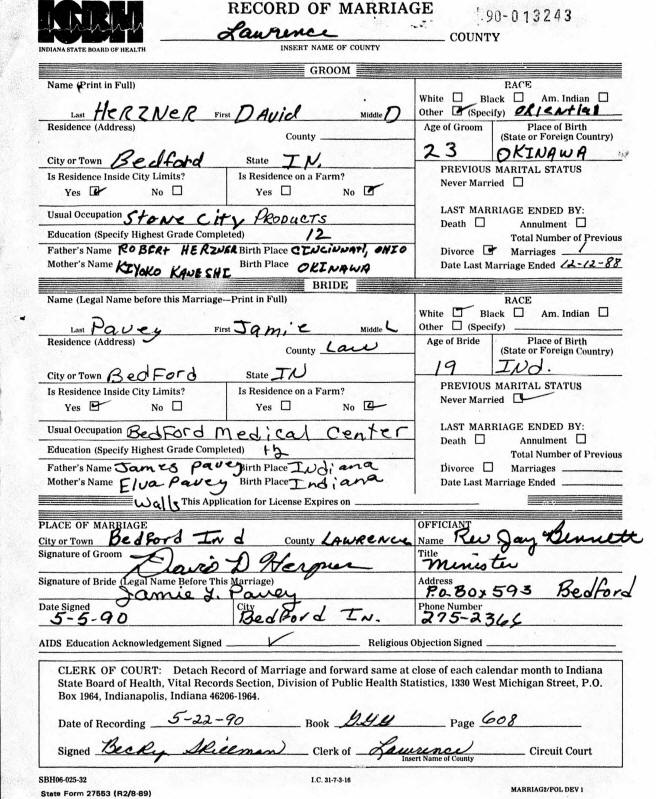 ISBH
INDIANA STATE BOARD OF HEALTH
RECORD OF MARRIAGE
90-013243
Lawrence COUNTY
INSERT NAME OF COUNTY
GROOM
Name (Print in Full)
Last HERZNER First DAVID Middle D
RACE
White ☐ Black ☐ Am. Indian ☐
Other ☑ (Specify) ORIENTIAL
Residence (Address)
County
City or Town Bedford State IN.
Age of Groom 23
Place of Birth
(State or Foreign Country)
OKINAWA
Is Residence Inside City Limits?
Yes ☑ No ☐
Is Residence on a Farm?
Yes ☐ No ☑
PREVIOUS MARITAL STATUS
Never Married ☐
Usual Occupation Stone City PRODUCTS
Education (Specify Highest Grade Completed) 12
Father's Name ROBERT HERZNER Birth Place CINCINNATI, OHIO
Mother's Name KIYOKO KANESHI Birth Place OKINAWA
LAST MARRIAGE ENDED BY:
Death ☐ Annulment ☐
Total Number of Previous
Divorce ☑ Marriages 1
Date Last Marriage Ended 12-12-88
BRIDE
Name (Legal Name before this Marriage—Print in Full)
Last Pavey First Jamie Middle L
RACE
White ☑ Black ☐ Am. Indian ☐
Other ☐ (Specify)
Residence (Address)
County Law
City or Town BedFord State IN
Age of Bride 19
Place of Birth
(State or Foreign Country)
Ind.
Is Residence Inside City Limits?
Yes ☑ No ☐
Is Residence on a Farm?
Yes ☐ No ☑
PREVIOUS MARITAL STATUS
Never Married ☑
Usual Occupation BedFord Medical Center
Education (Specify Highest Grade Completed) 12
Father's Name James Pavey Birth Place Indiana
Mother's Name Elva Pavey Birth Place Indiana
Walls
LAST MARRIAGE ENDED BY:
Death ☐ Annulment ☐
Total Number of Previous
Divorce ☐ Marriages
Date Last Marriage Ended
This Application for License Expires on
PLACE OF MARRIAGE
City or Town Bedford Ind County LAWRENCE
OFFICIANT
Name Rev Jay Bennett
Signature of Groom David D Herzner
Title
Minister
Signature of Bride (Legal Name Before This Marriage)
Jamie L. Pavey
Address
P.O. Box 593 Bedford
Date Signed
5-5-90
City
Bedford IN.
Phone Number
275-2366
AIDS Education Acknowledgement Signed ✓ Religious Objection Signed
CLERK OF COURT: Detach Record of Marriage and forward same at close of each calendar month to Indiana
State Board of Health, Vital Records Section, Division of Public Health Statistics, 1330 West Michigan Street, P.O.
Box 1964, Indianapolis, Indiana 46206-1964.
Date of Recording 5-22-90 Book Page 608
Signed Becky Skillman Clerk of Lawrence Circuit Court
Insert Name of County
SBH06-025-32
I.C. 31-7-3-16
MARRIAG2/POL DEV 1
State Form 27553 (R2/8-89)